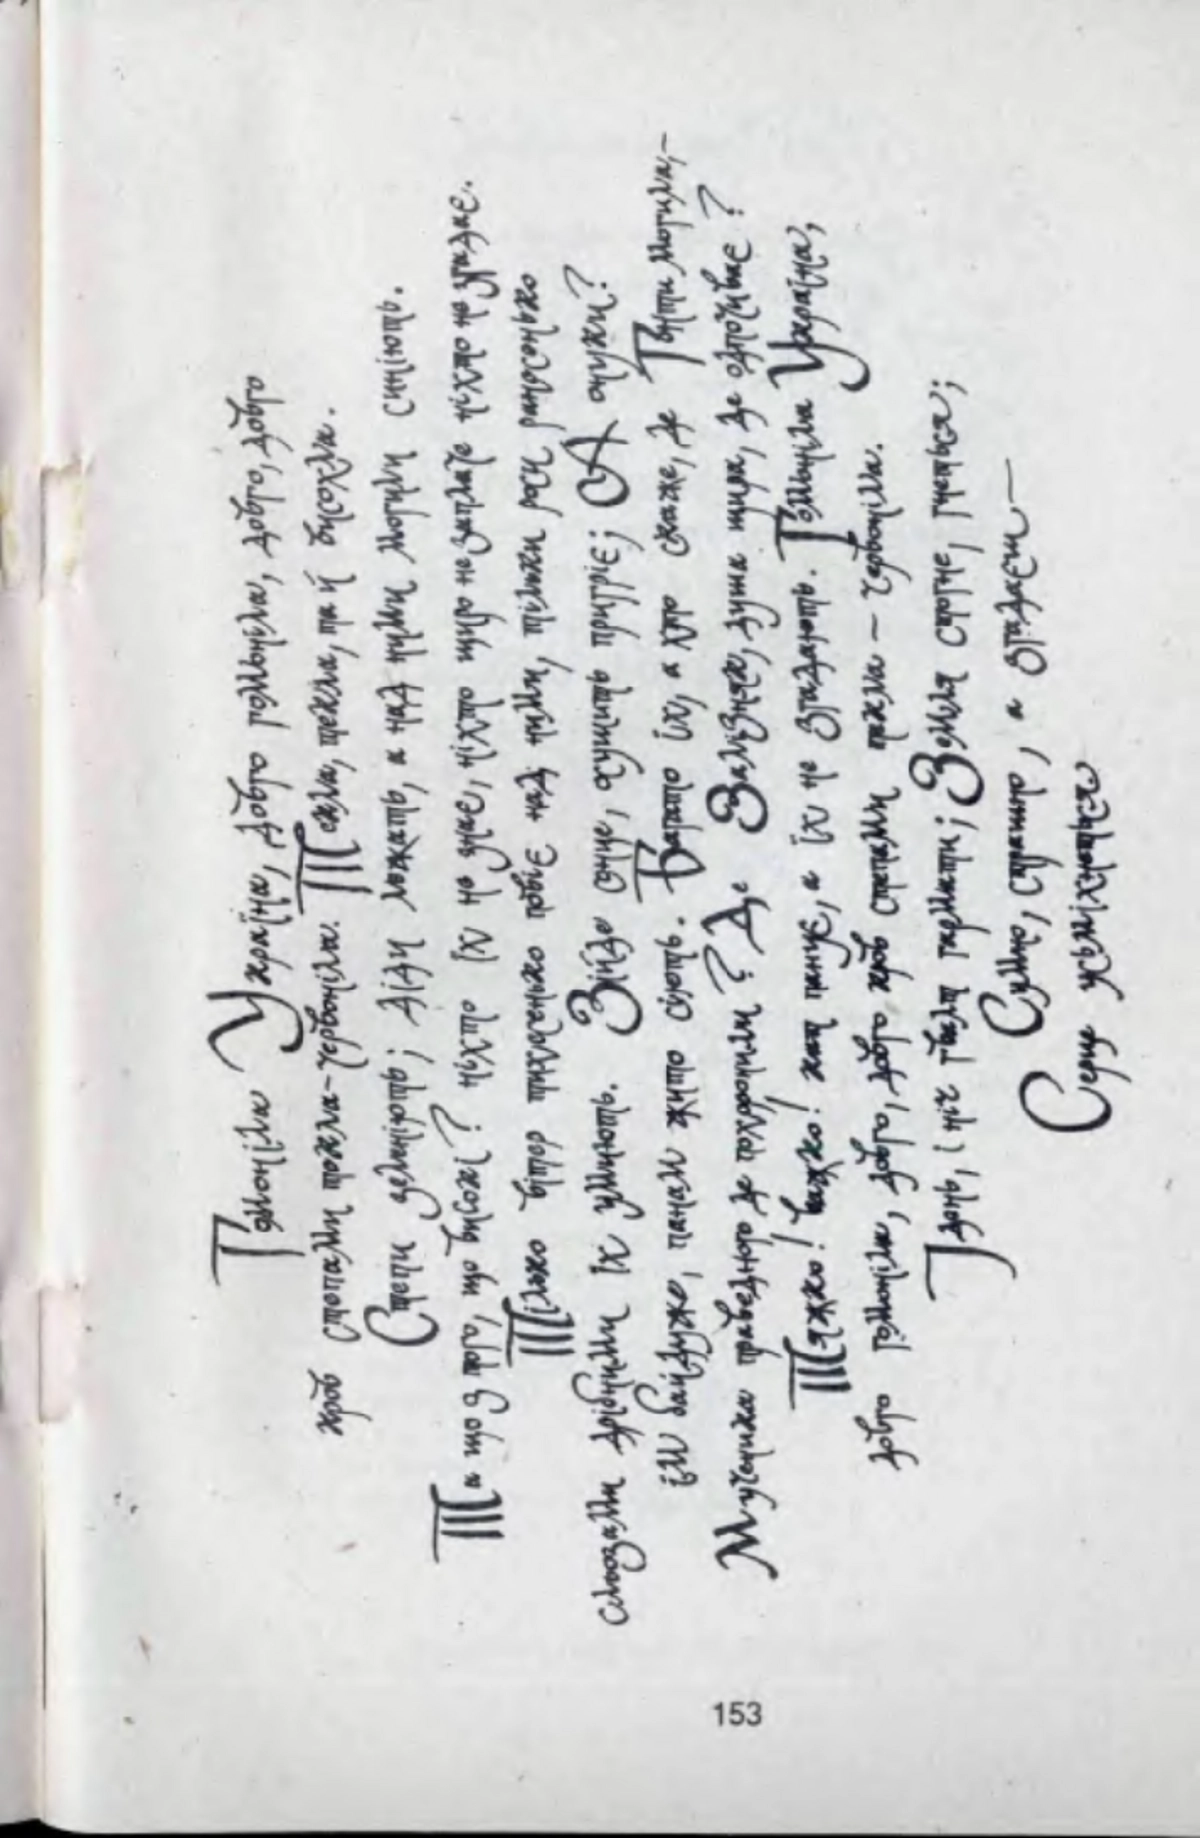 Гомоніла Україна, довго гомоніла, довго, довго
кров степами текла-червоніла. Текла, текла, та й висохла.
Степи зеленіють; діди лежать, а над ними могили синіють.
Та що з того, що високі? ніхто їх не знає, ніхто щиро не заплаче ніхто не згадає.
Тілько вітер тихесенько повіє над ними, тільки роси ранесенько
сльозами дрібними їх умиють. Зійде сонце, осушить пригріє; А онуки?
їм байдуже, панам жито сіють. Багато їх, а хто скаже, де Гонти могила,–
Мученика праведного де похоронили? Де Залізняк, душа щира, де одпочиває?
Тяжко! важко! кат панує, а їх не згадають. Гомоніла Україна,
довго гомоніла, довго, довго кров степами текла – червоніла.
І день, і ніч гвалт гармати; Земля стогне, гнеться;
Сумно, страшно, а згадаєш —
Серце усміхнеться
153